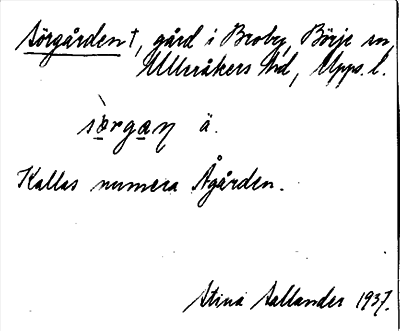 Sörgården†, gård i Broby, Börje sn,
Ulleråkers hd, Upps. l.
sò̱rga̱ɳ ä.
Kallas numera Ågården.
Stina Sallander 1937.